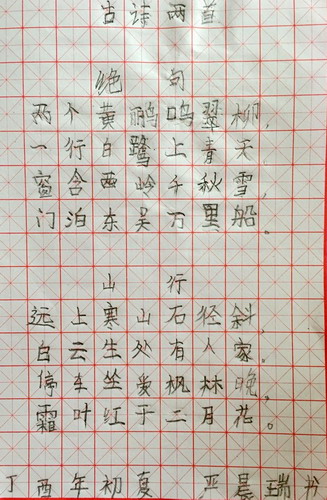 古诗两首
绝句
两个黄鹂鸣翠柳,
一行白鹭上青天
窗含西岭千秋雪,
门泊东吴万里船。
山行
远上寒山石径斜,
白云生处有人家。
停车坐爱枫林晚,
霜叶红于二月花。
丁酉年初夏 严晨瑞书